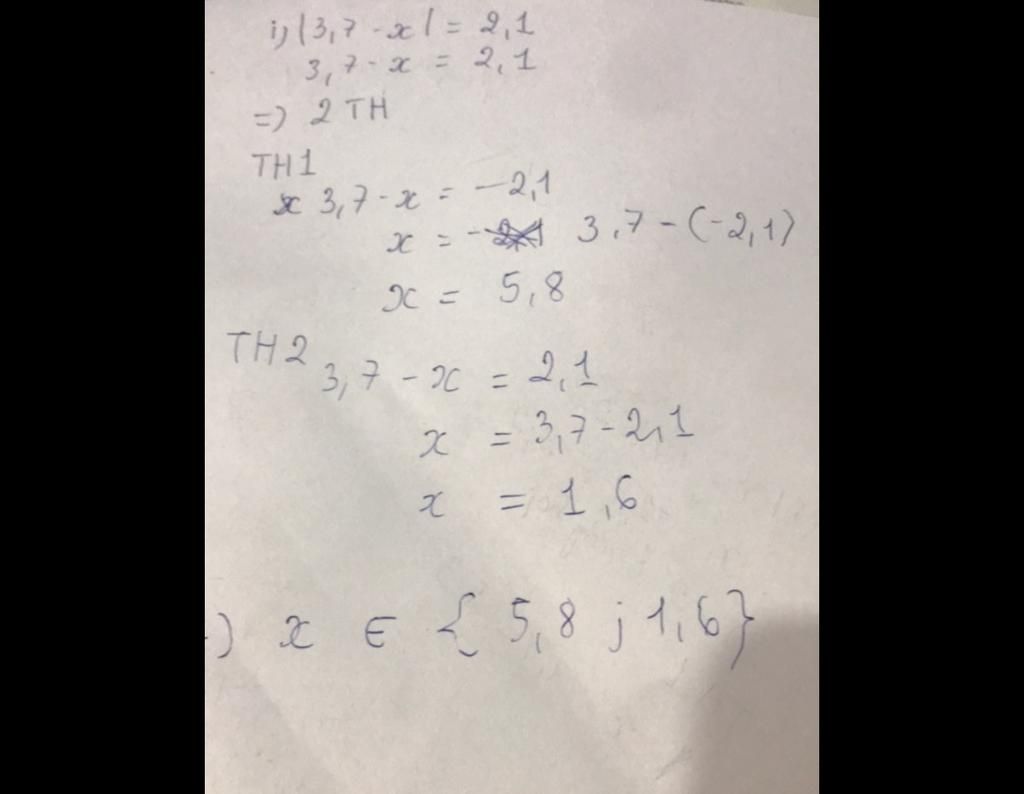 i, |3,7 - x| = 2,1
3,7 - x = 2,1
=) 2 TH
TH1
x 3,7 - x = -2,1
x = - 3,7 - (-2,1)
x = 5,8
TH2
3,7 - x = 2,1
x = 3,7 - 2,1
x = 1,6
=) x ∈ { 5,8 ; 1,6}